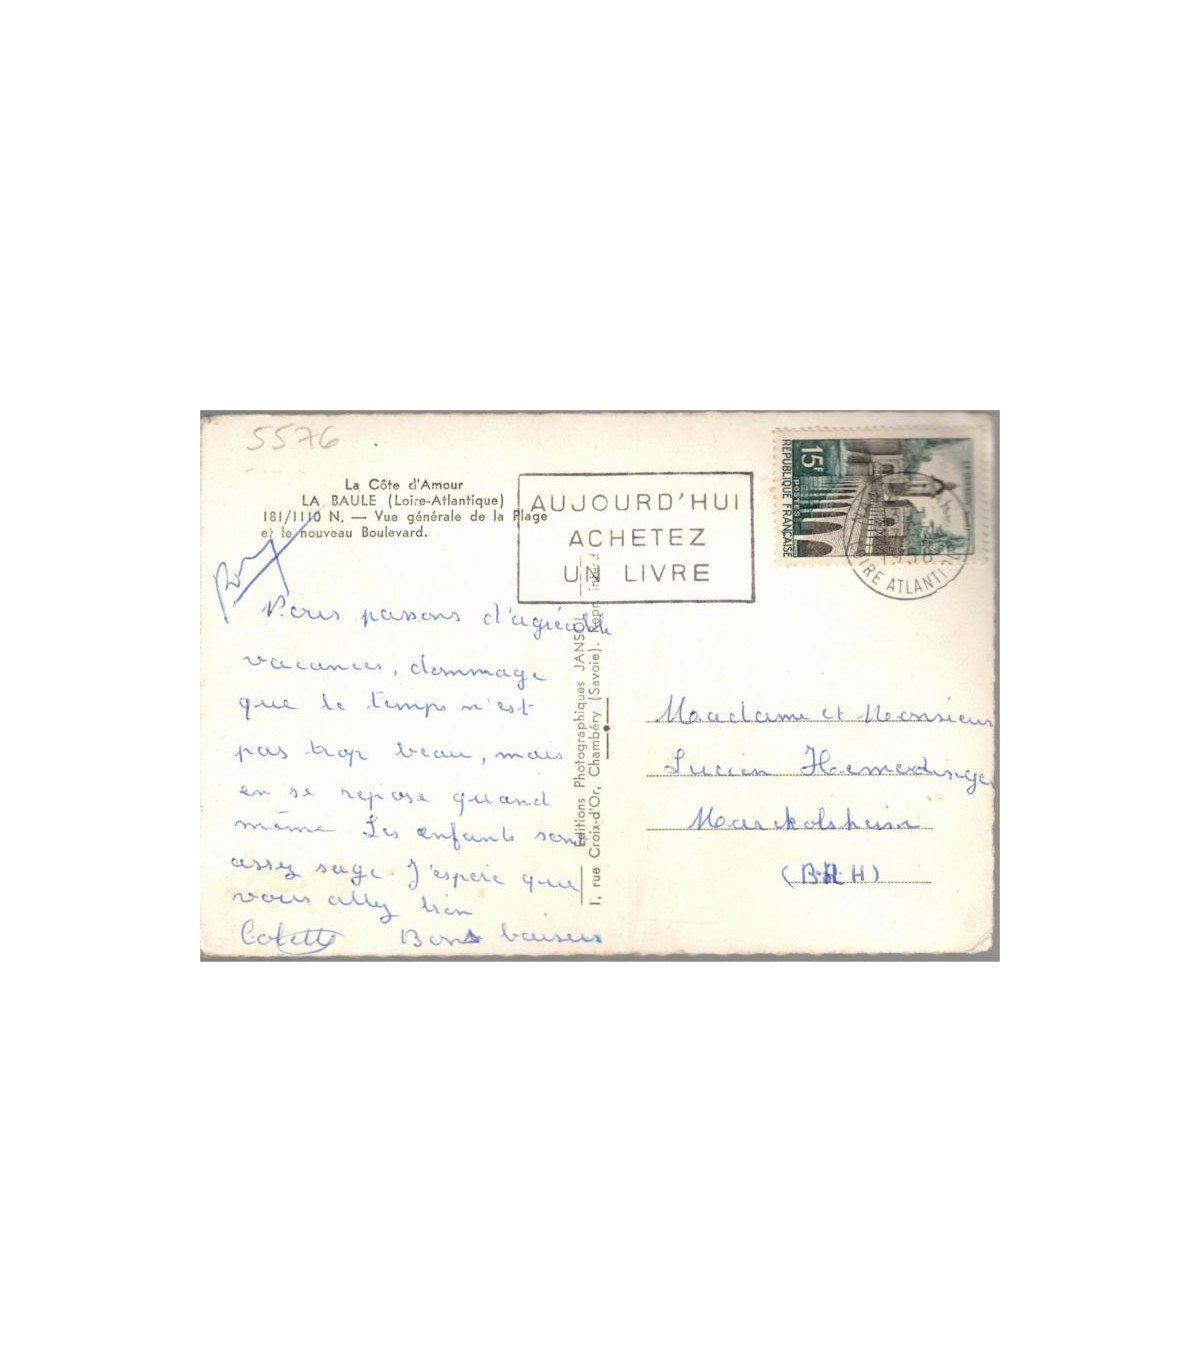 5576
La Côte d'Amour
LA BAULE (Loire-Atlantique)
181/1110 N. — Vue générale de la Plage
et le nouveau Boulevard.
AUJOURD'HUI
ACHETEZ
UN LIVRE
15F
POSTES
REPUBLIQUE FRANÇAISE
LOIRE ATLANTI
Nous passons d'agréable
vacances, dommage
que le temps n'est
pas trop beau, mais
en se repose quand
même Les enfants sont
assez sage. J'espère que
vous allez bien
Colette Bons baisers
Editions Photographiques JANSOL
1, rue Croix-d'Or, Chambéry (Savoie). Repr. interd
Madame et Monsieur
Lucien Hemerdinger
Marckolsheim
(B.R.H)